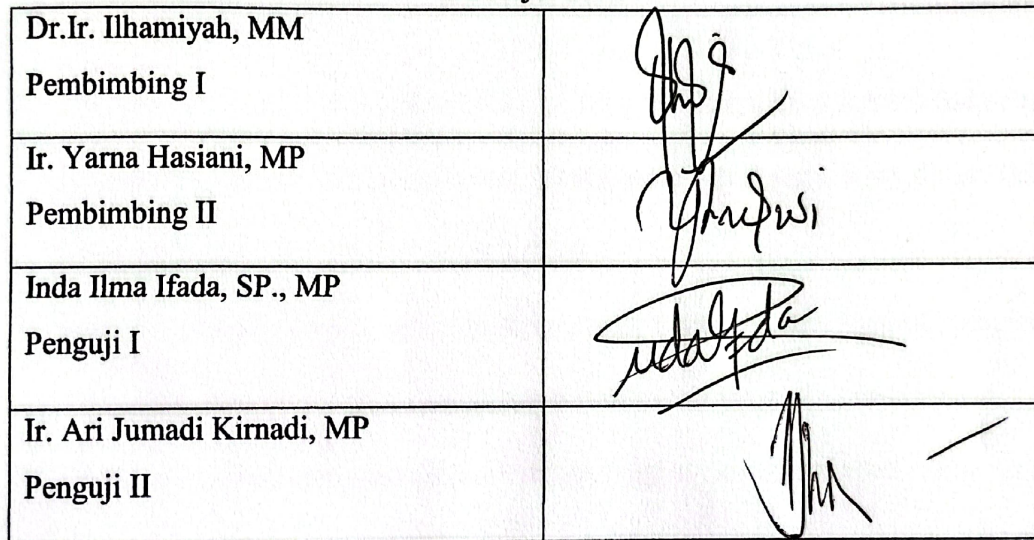 Dr.Ir. Ilhamiyah, MM
Pembimbing I
Ir. Yarna Hasiani, MP
Pembimbing II
Inda Ilma Ifada, SP., MP
Penguji I
Ir. Ari Jumadi Kirnadi, MP
Penguji II